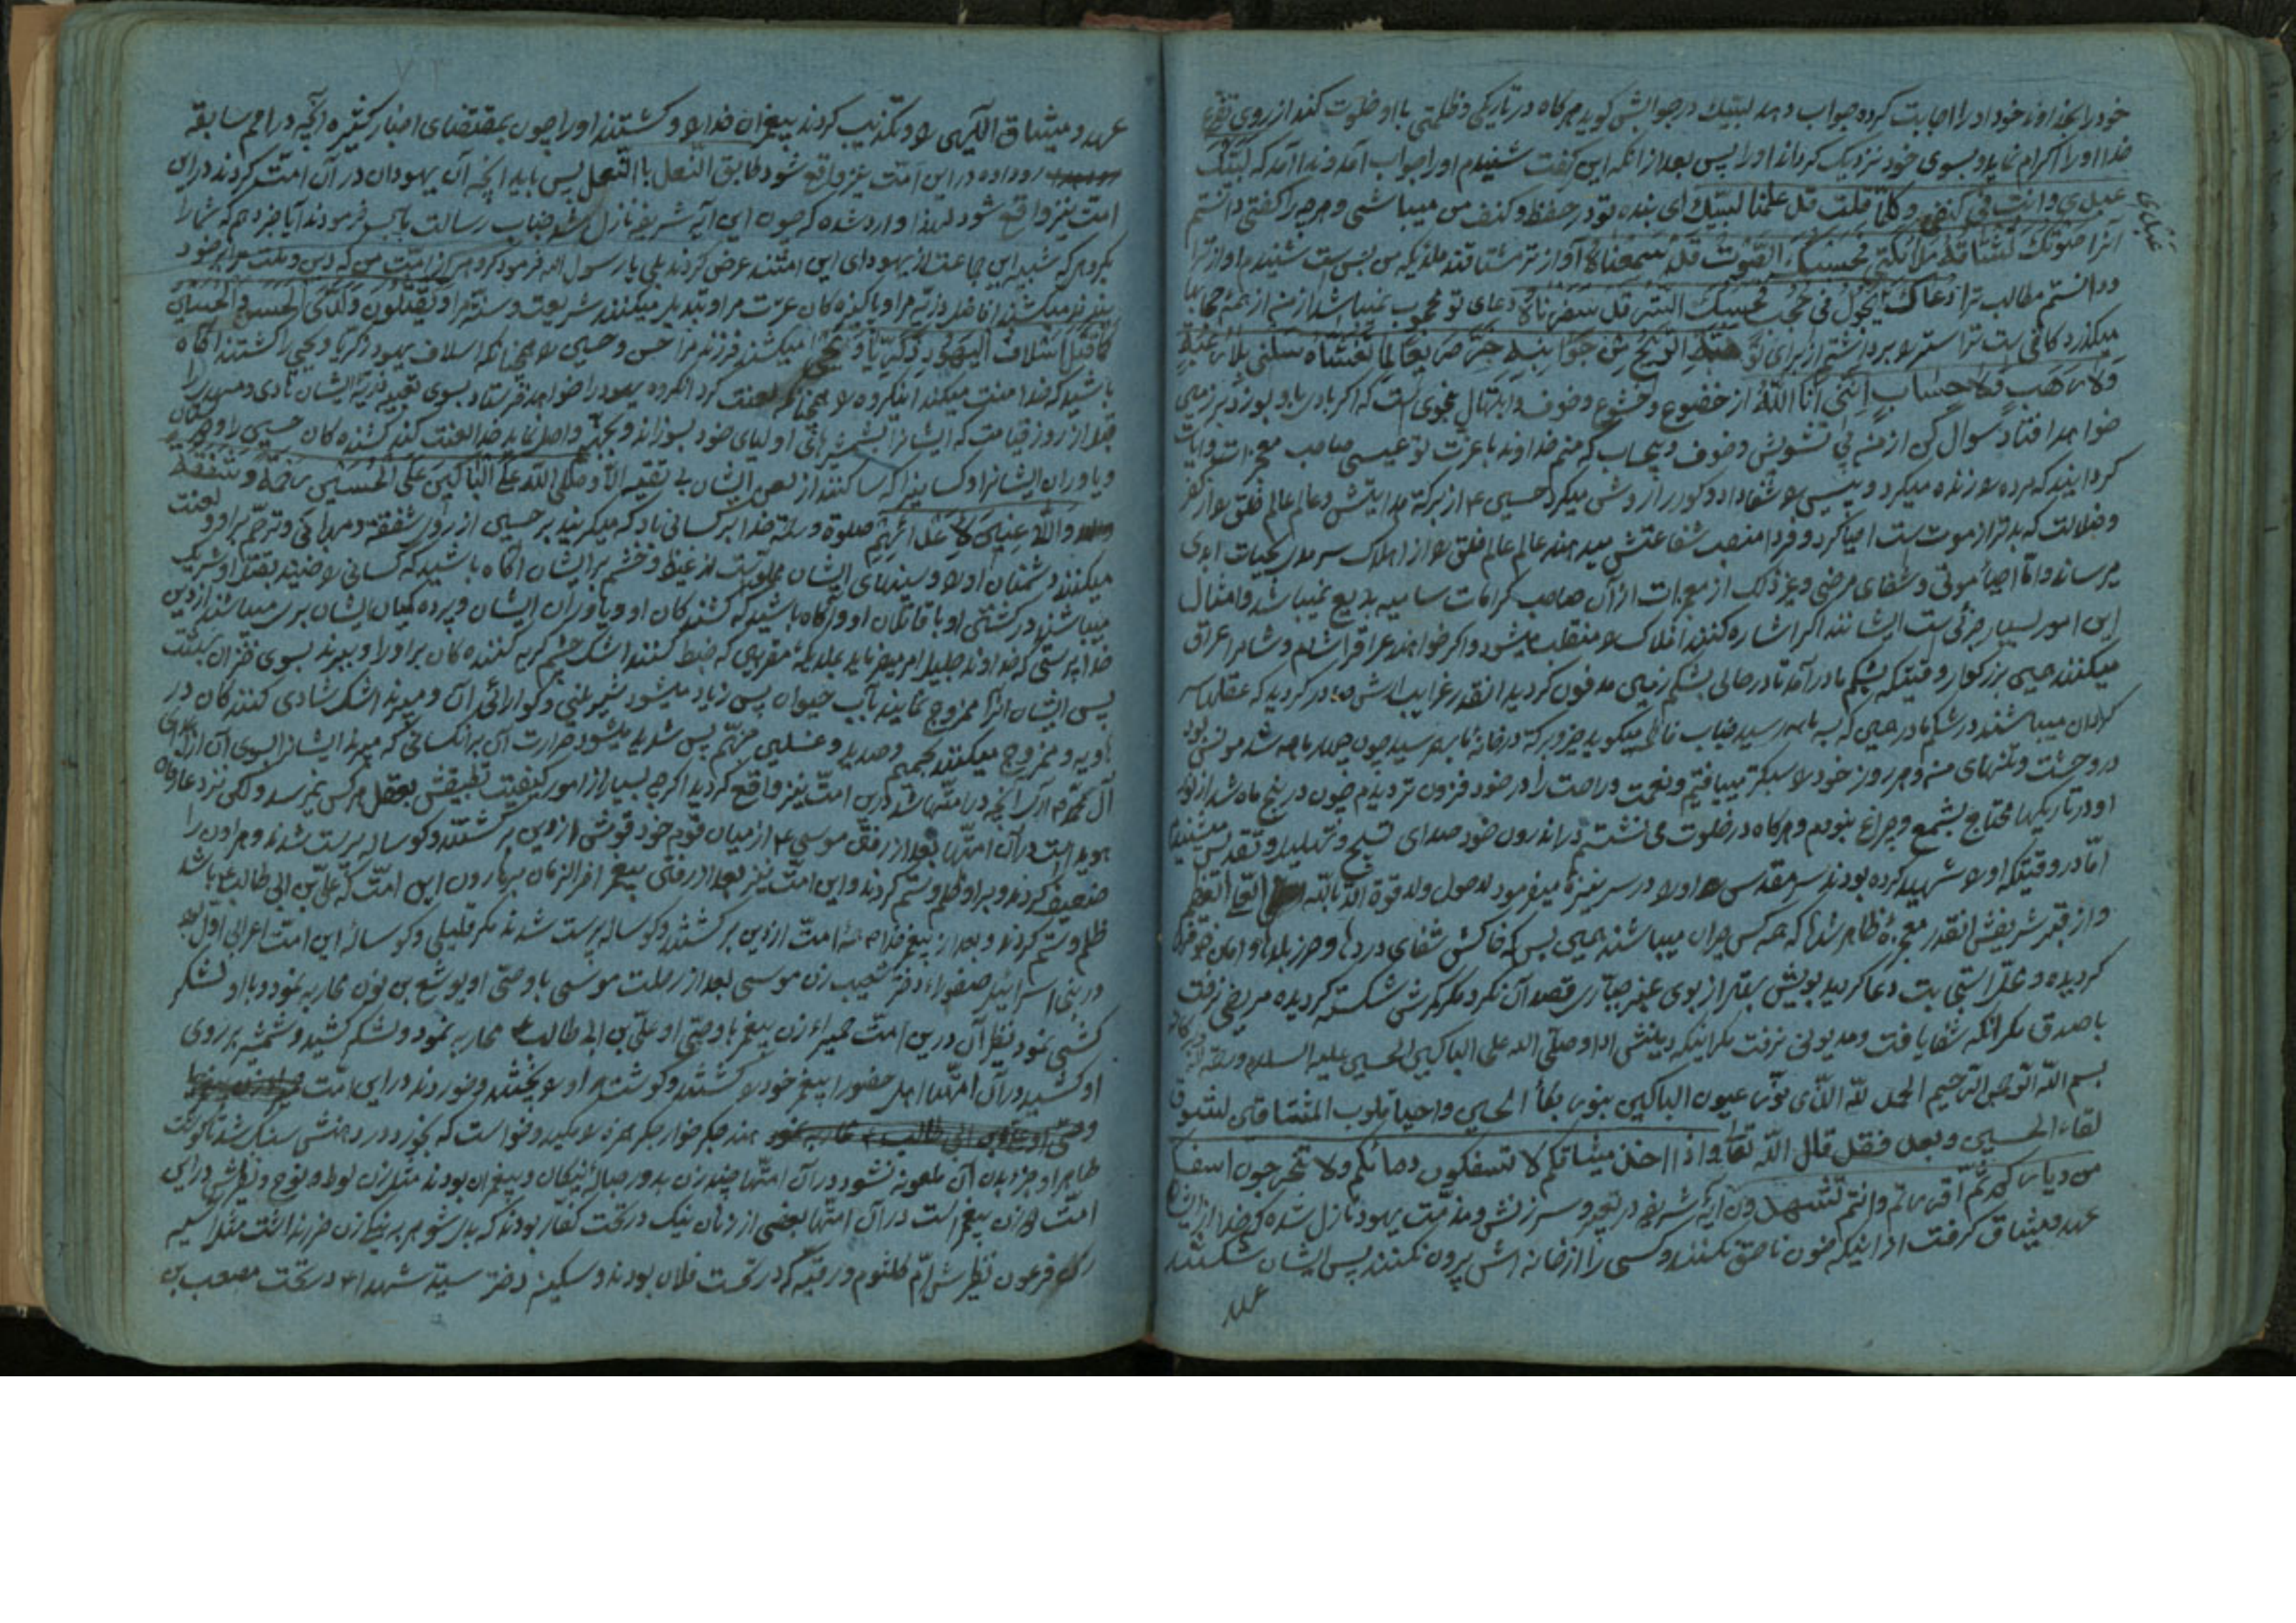 خود را بخداوند خود او را اجابت کرده جواب دهد لبیک در جوابش گوید هرگاه در تاریکی و ظلمتی با او خلوت کند از روی تضرع
خدا او را اکرام نماید و بسوی خود نزدیک گرداند او را پس بعد از آنکه این گفت شنیدم او را جواب آمد ندا آمد که لبیک
عبدی وانت فی کنفی وکلما قلت قد علمنا لبیک ای بنده تو در حفظ و کنف من میباشی و هرچه را گفتی دانستم
عبدی
آنرا صوتک تشتاقه ملائکتی فحسبک الصوت قد سمعناه آواز ترا مشتاقند ملائکه من بس است شنیدم آواز ترا
و دانستم مطالب ترا دعاک یجول فی حجب فحسبک الستر قد سفرناه دعای تو محجوب نمیباشد از من از همه حجابها
میگذرد کافی است ترا ستر را برداشتم از برای تو لو هبت الریح من جوانبه خر صریعا لما تغشاه سلنی بلا رغبة
ولا رهب ولا حساب اننی انا الله از خضوع و خشوع و خوف و ابتهال بنحوی است که اگر بادی باو بوزد بر زمین
خواهد افتاد سوال کن از من بی تشویش و خوف و بیحساب که منم خداوند با عزت تو عیسی صاحب معجزات و آیات
گردانیدکه مرده را زنده میکرد و پیسی را شفا داد و کور را روشن میکرد حسین ع از برکة هدایتش و عالم عالم خلق را از کفر
و ضلالت که بدتر از موت است احیا کرد و فردا منصب شفاعتش میدهند عالم عالم خلق را از هلاک سرمدی بحیات ابدی
میرساند و اما احیاء موتی و شفای مرضی و غیر ذلک از معجزات از آن صاحب کرامات سامیه بدیع نمیباشد و امثال
این امور بسیار جزئی است ایشانند اگر اشاره کنند افلاک را منقلب میشود و اگر خواهند عراق را شام و شام را عراق
میکنند حسین بزرگوار وقتیکه بشکم مادر آمد تا در حالی بشکم زمین مدفون گردید آنقدر غرایب ازش صادر گردید که عقلها
در وحشت و تنهای من و هر روز خود را سبکتر میبافتم و نعمت و راحت را در خود فزون تر دیدم چون در پنج ماه شد از نور
او در تاریکیها محتاج بشمع و چراغ نبودم و هرگاه در خلوت می نشستم در اندرون خود صدای تسبیح و تهلیل و تقدیس میشنیدم
اما در وقتیکه او را شهید کرده بودند سر مقدس او را در سر نیزه میفرمود لا حول ولا قوة الا بالله العلی العظیم
و از قبر شریفش آنقدر معجزه ظاهر شد که همه کس حیران میباشند همین بس که خاکش شفای دردها و حرز بلاها و امان خوفها
گردیده و محل استجابت دعا گردید بویش بهتر از بوی عنبر جباری قصد آن نکرد مگر کمرش شکسته گردیده مریض نرفت
با صدق مگر آنکه شفا یافت و مدیونی نرفت مگر اینکه دینش ادا و صلی الله علی الباکین الحسین علیه السلام و رحمة الله وبرکاته
بسم الله الرحمن الرحیم الحمد لله الذی نور عیون الباکین بنور بکاء الحسین واحیا قلوب المشتاقین لشوق
لقاء الحسین وبعد فقد قال الله تعالی واذ اخذنا میثاقکم لا تسفکون دمائکم ولا تخرجون انفسکم
من دیارکم ثم اقررتم وانتم تشهدون آیه شریفه در تعییر و سرزنش و مذمت یهود نازل شده که خدا از ایشان
عهد و میثاق گرفت از اینکه خون ناحق نکنند و کسی را از خانه اش بیرون نکنند پس ایشان شکستند
عهد
عهد و میثاق الهی را و تکذیب کردند پیغمبران خدا را و کشتند او را چون بمقتضای اخبار کثیره آنچه در امم سابقه
رو داده در این امت نیز واقع شود طابق النعل بالنعل پس باید آنچه آن یهودان در آن امت کردند در این
امت نیز واقع شود لهذا وارد شده که چون این آیه شریفه نازل شد جناب رسالت مآب فرمودند آیا خبر دهم که شما را
بگروهی که شبیه این جماعت از یهودای این امتند عرض کردند بلی یا رسول الله فرمود گروهی از امت من که دین و ملت مرا بر خود
بندند میکشند افاضل ذریه مرا و پاکیزه کان عترت مرا و تبدیل میکنند شریعت و سنت مرا و یقتلون ولدی الحسن والحسین
کما قتل اسلاف الیهود زکریا ویحیی میکشند فرزند مرا حسن و حسین را همچنانکه اسلاف یهود زکریا و یحیی را کشتند آگاه
باشید که خدا لعنت میکند اینگروه را همچنانکه لعنت کرد آنگروه یهود را خواهد فرستاد بسوی بقیه ذریه ایشان هادی و مهدی را
قبل از روز قیامت که ایشانرا بشمشیرهای اولیای خود بسوزاند و بجهنم واصل نماید خدا لعنت کند کشنده کان حسین را و دوستان
و یاوران ایشانرا و کسانیرا که ساکتند از لعن ایشان بی تقیه الا وصلی الله علی الباکین علی الحسین رحمة وشفقة
واللاعنین لاعدائهم صلوة و رحمة خدا بر کسانی باد که میگریند بر حسین از روی شفقة و مهربانی و ترحم بر او و لعنت
میکنند دشمنان او را و سینهای ایشان مملو است از غیظ و خشم بر ایشان آگاه باشید که کسانی راضیند بقتل او شریک
میباشند در کشتن او با قاتلان او و آگاه باشید که کشنده کان او و یاوران ایشان و پرده گیان ایشان بری میباشند از دین
خدا بدرستی که خداوند جلیل امر میفرماید بملائکه مقربین که ضبط کنند اشک چشم گریه کننده کان بر او را و ببرند بسوی خزان بهشت
پس ایشان آنرا ممزوج نمایند بآب حیوان پس زیاد میشود شیرینی و گوارائی آن و میبرند اشک شادی کنندکان در
هاویه و ممزوج میکنند بحمیم و صدید و غسلین جهنم پس شدید میشود حرارت آن بر آنکسانی که میبرند ایشانرا بسوی آن از اعدای
آل محمد آری آنچه در امتها شد درین امت نیز واقع گردید اگر چه بسیار از امور کیفیت تطبیقش بعقل هرکس نمیرسد ولکن نزد عارفان
هویدا است در آن امتها بعد از رفتن موسی ع از میان قوم خود قومش از دین برگشتند و گوساله پرست شدند و هارون را
ضعیف کردند و بر او ظلم و ستم کردند و این امت نیز بعد از رفتن پیغمبر آخر الزمان بر هارون این امت که علی بن ابی طالب ع باشد
ظلم و ستم کردند و بعد از پیغمبر خدا همه امت از دین برگشتند و گوساله پرست شدند مگر قلیلی و گوساله این امت اعرابی اول بود
در بنی اسرائیل صفوراء دختر شعیب زن موسی بعد از رحلت موسی با وصی او یوشع بن نون محاربه نمود و با او لشکر
کشی نمود نظیر آن درین امت حمیراء زن پیغمبر با وصی او علی بن ابی طالب محاربه نمود و لشکر کشید و شمشیر بر روی
او کشید در آن امتها اهل حضورا پیغمبر خود را کشتند و گوشت او را پختند و خوردند در این امت
هند جگر خوار جگر حمزه را مکید و خواست که بخورد در دهنش سنگ شد تا گوشت
طاهر او جزو بدن آن ملعونه نشود در آن امتها چند زن بد در حباله نیکان و پیغمبران بودند مثل زن لوط و نوح و نظیرش در این
امت زن پیغمبر است در آن امتها بعضی از زنان نیک در تحت کفار بودند که بدی شوهر به نیکی زن ضرر نداشت مثل آسیه
زن فرعون نظیرش ام کلثوم و رقیه که در تحت فلان بودند و سکینه دختر سید شهدا ع در تحت مصعب بن